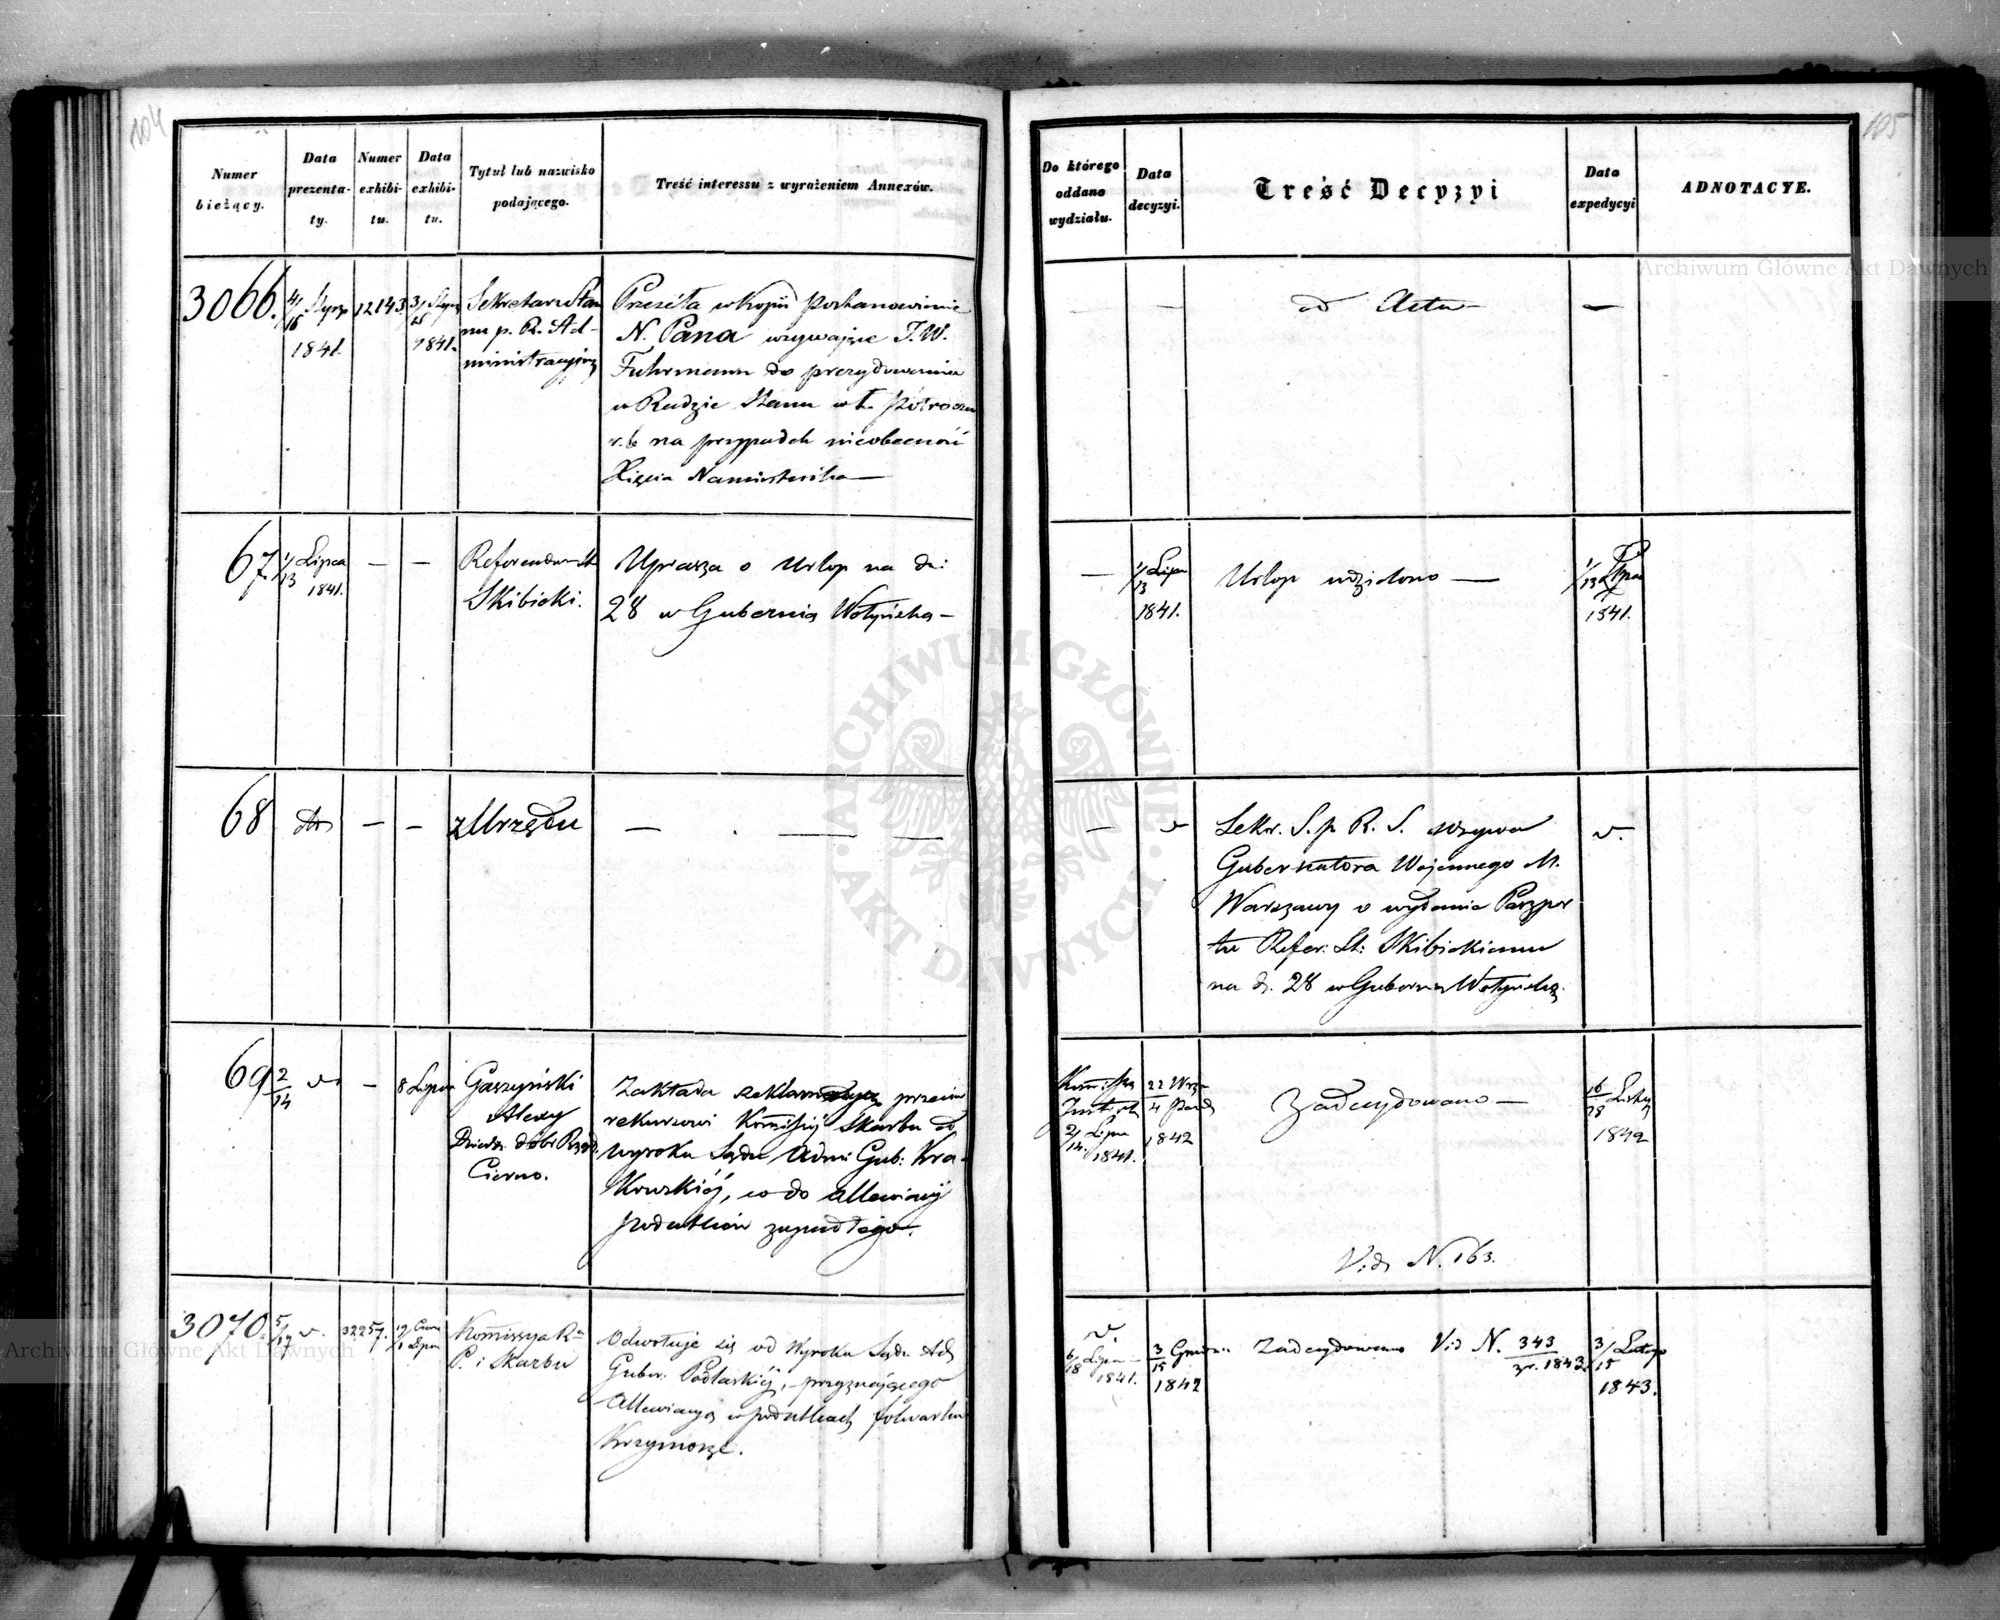 104
Numer
bieżący.
Data
prezenta-
ty.
Numer
exhibi-
tu.
Data
exhibi-
tu.
Tytuł lub nazwisko
podającego.
Treść interessu z wyrażeniem Annexów.
3066.
1841.
12143
1841.
Sekretarz Sta
nu p. R. Ad-
ministracyjnej
Przeséła w kopii Postanowienie
N. Pana wzywające J.W.
Fuhrmann do prezydowania
w Radzie Stanu w t. półroczu
r. b na przypadek nieobecności
Xięcia Namiestnika —
67
1/13 Lipca
1841.
—
—
Skibicki.
Uprasza o Urlop na dni
28 w Gubernią Wołyńską —
68
—
—
z Urzędu
—
—
—
69
2/14
—
8 Lipca
Gaszyński
Alexy
Cierno.
Zakłada reklamacyą przeciw
rekursowi Kommissyi Skarbu od
wyroku Sądu Adm: Gub: Kra-
kowskiéj, co do allewiacyi
podatków zapadłego.
3070
5/17 v.
32257.
Kommissya R
P. i Skarbu
Odwołuje się od Wyroku Sądu Ad
Guber. Podlaskiéj, przyznającego
Allewiacyą w podatkach folwarku
Krzymosze.
105
Do którego
oddano
wydziału.
Data
decyzyi.
Treść Decyzyi
Data
expedycyi
ADNOTACYE.
—
ad Acta —
—
—
1/13 Lipca
1841.
Urlop udzielono —
1/13 Lipca
1841.
—
v
Sekr. S. p R. S. wzywa
Gubernatora Wojennego M.
Warszawy o wydanie Paszpor
tu Refer: St: Skibickiemu
na d. 28 w Gubernią Wołyńską.
v.
2/14 Lipca
1841.
22 Wrz
4 Paźd
1842
Zadecydowano —
16/28
1842
Vide N. 163.
v.
6/18 Lipca
1841.
3/15 Grudnia
1842
Zadecydowano Vid N. 343
z r. 1843.
3/15 Lutego
1843.
Archiwum Główne Akt Dawnych
Archiwum Główne Akt Dawnych
ARCHIWUM GŁÓWNE
AKT DAWNYCH